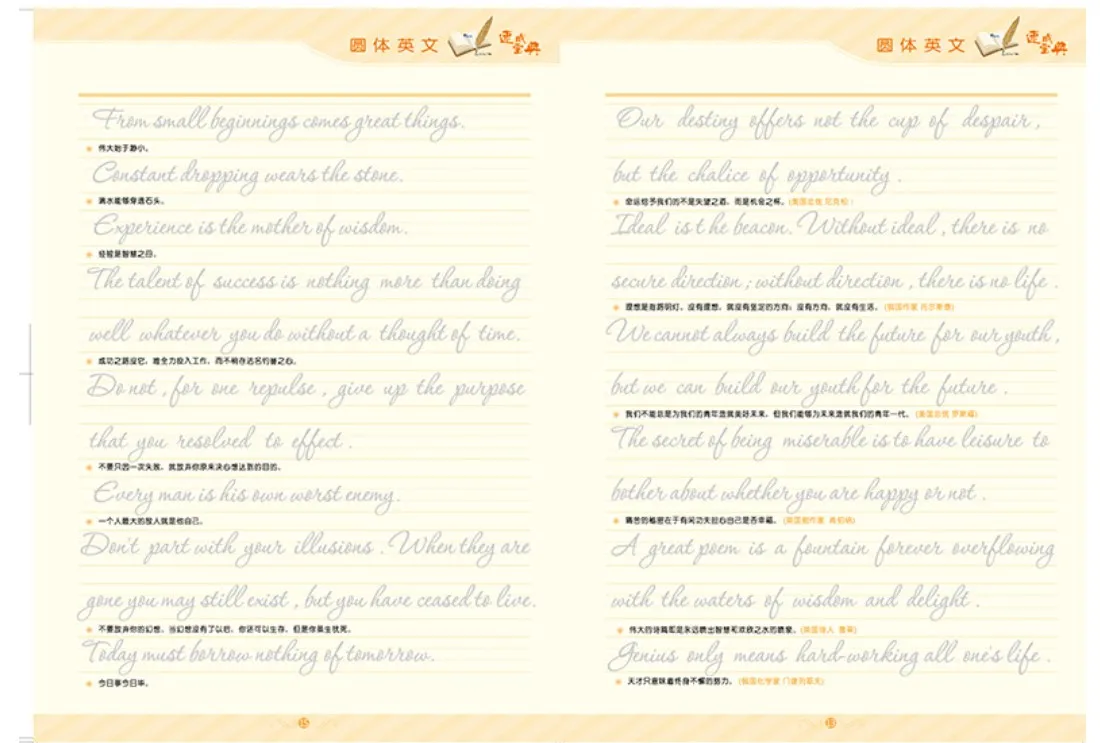 圆体英文 速成宝典
From small beginnings comes great things.
伟大始于渺小。
Constant dropping wears the stone.
滴水能够穿透石头。
Experience is the mother of wisdom.
经验是智慧之母。
The talent of success is nothing more than doing
well whatever you do without a thought of time.
成功之路没它，唯全力投入工作，而不稍存沽名钓誉之心。
Do not , for one repulse , give up the purpose
that you resolved to effect .
不要只因一次失败，就放弃你原来决心想达到的目的。
Every man is his own worst enemy.
一个人最大的敌人就是他自己。
Don't part with your illusions . When they are
gone you may still exist , but you have ceased to live.
不要放弃你的幻想。当幻想没有了以后，你还可以生存，但是你虽生犹死。
Today must borrow nothing of tomorrow.
今日事今日毕。
15
圆体英文 速成宝典
Our destiny offers not the cup of despair ,
but the chalice of opportunity .
命运给予我们的不是失望之酒，而是机会之杯。(美国总统 尼克松 )
Ideal is t he beacon. Without ideal , there is no
secure direction ; without direction , there is no life .
理想是指路明灯。没有理想，就没有坚定的方向；没有方向，就没有生活。(俄国作家 托尔斯泰)
We cannot always build the future for our youth ,
but we can build our youth for the future .
我们不能总是为我们的青年造就美好未来，但我们能够为未来造就我们的青年一代。(美国总统 罗斯福)
The secret of being miserable is to have leisure to
bother about whether you are happy or not .
痛苦的秘密在于有闲功夫担心自己是否幸福。(英国剧作家 肖伯纳)
A great poem is a fountain forever overflowing
with the waters of wisdom and delight .
伟大的诗篇即是永远喷出智慧和欢欣之水的喷泉。(英国诗人 雪莱)
Genius only means hard-working all one's life .
天才只意味着终身不懈的努力。(俄国化学家 门捷列耶夫)